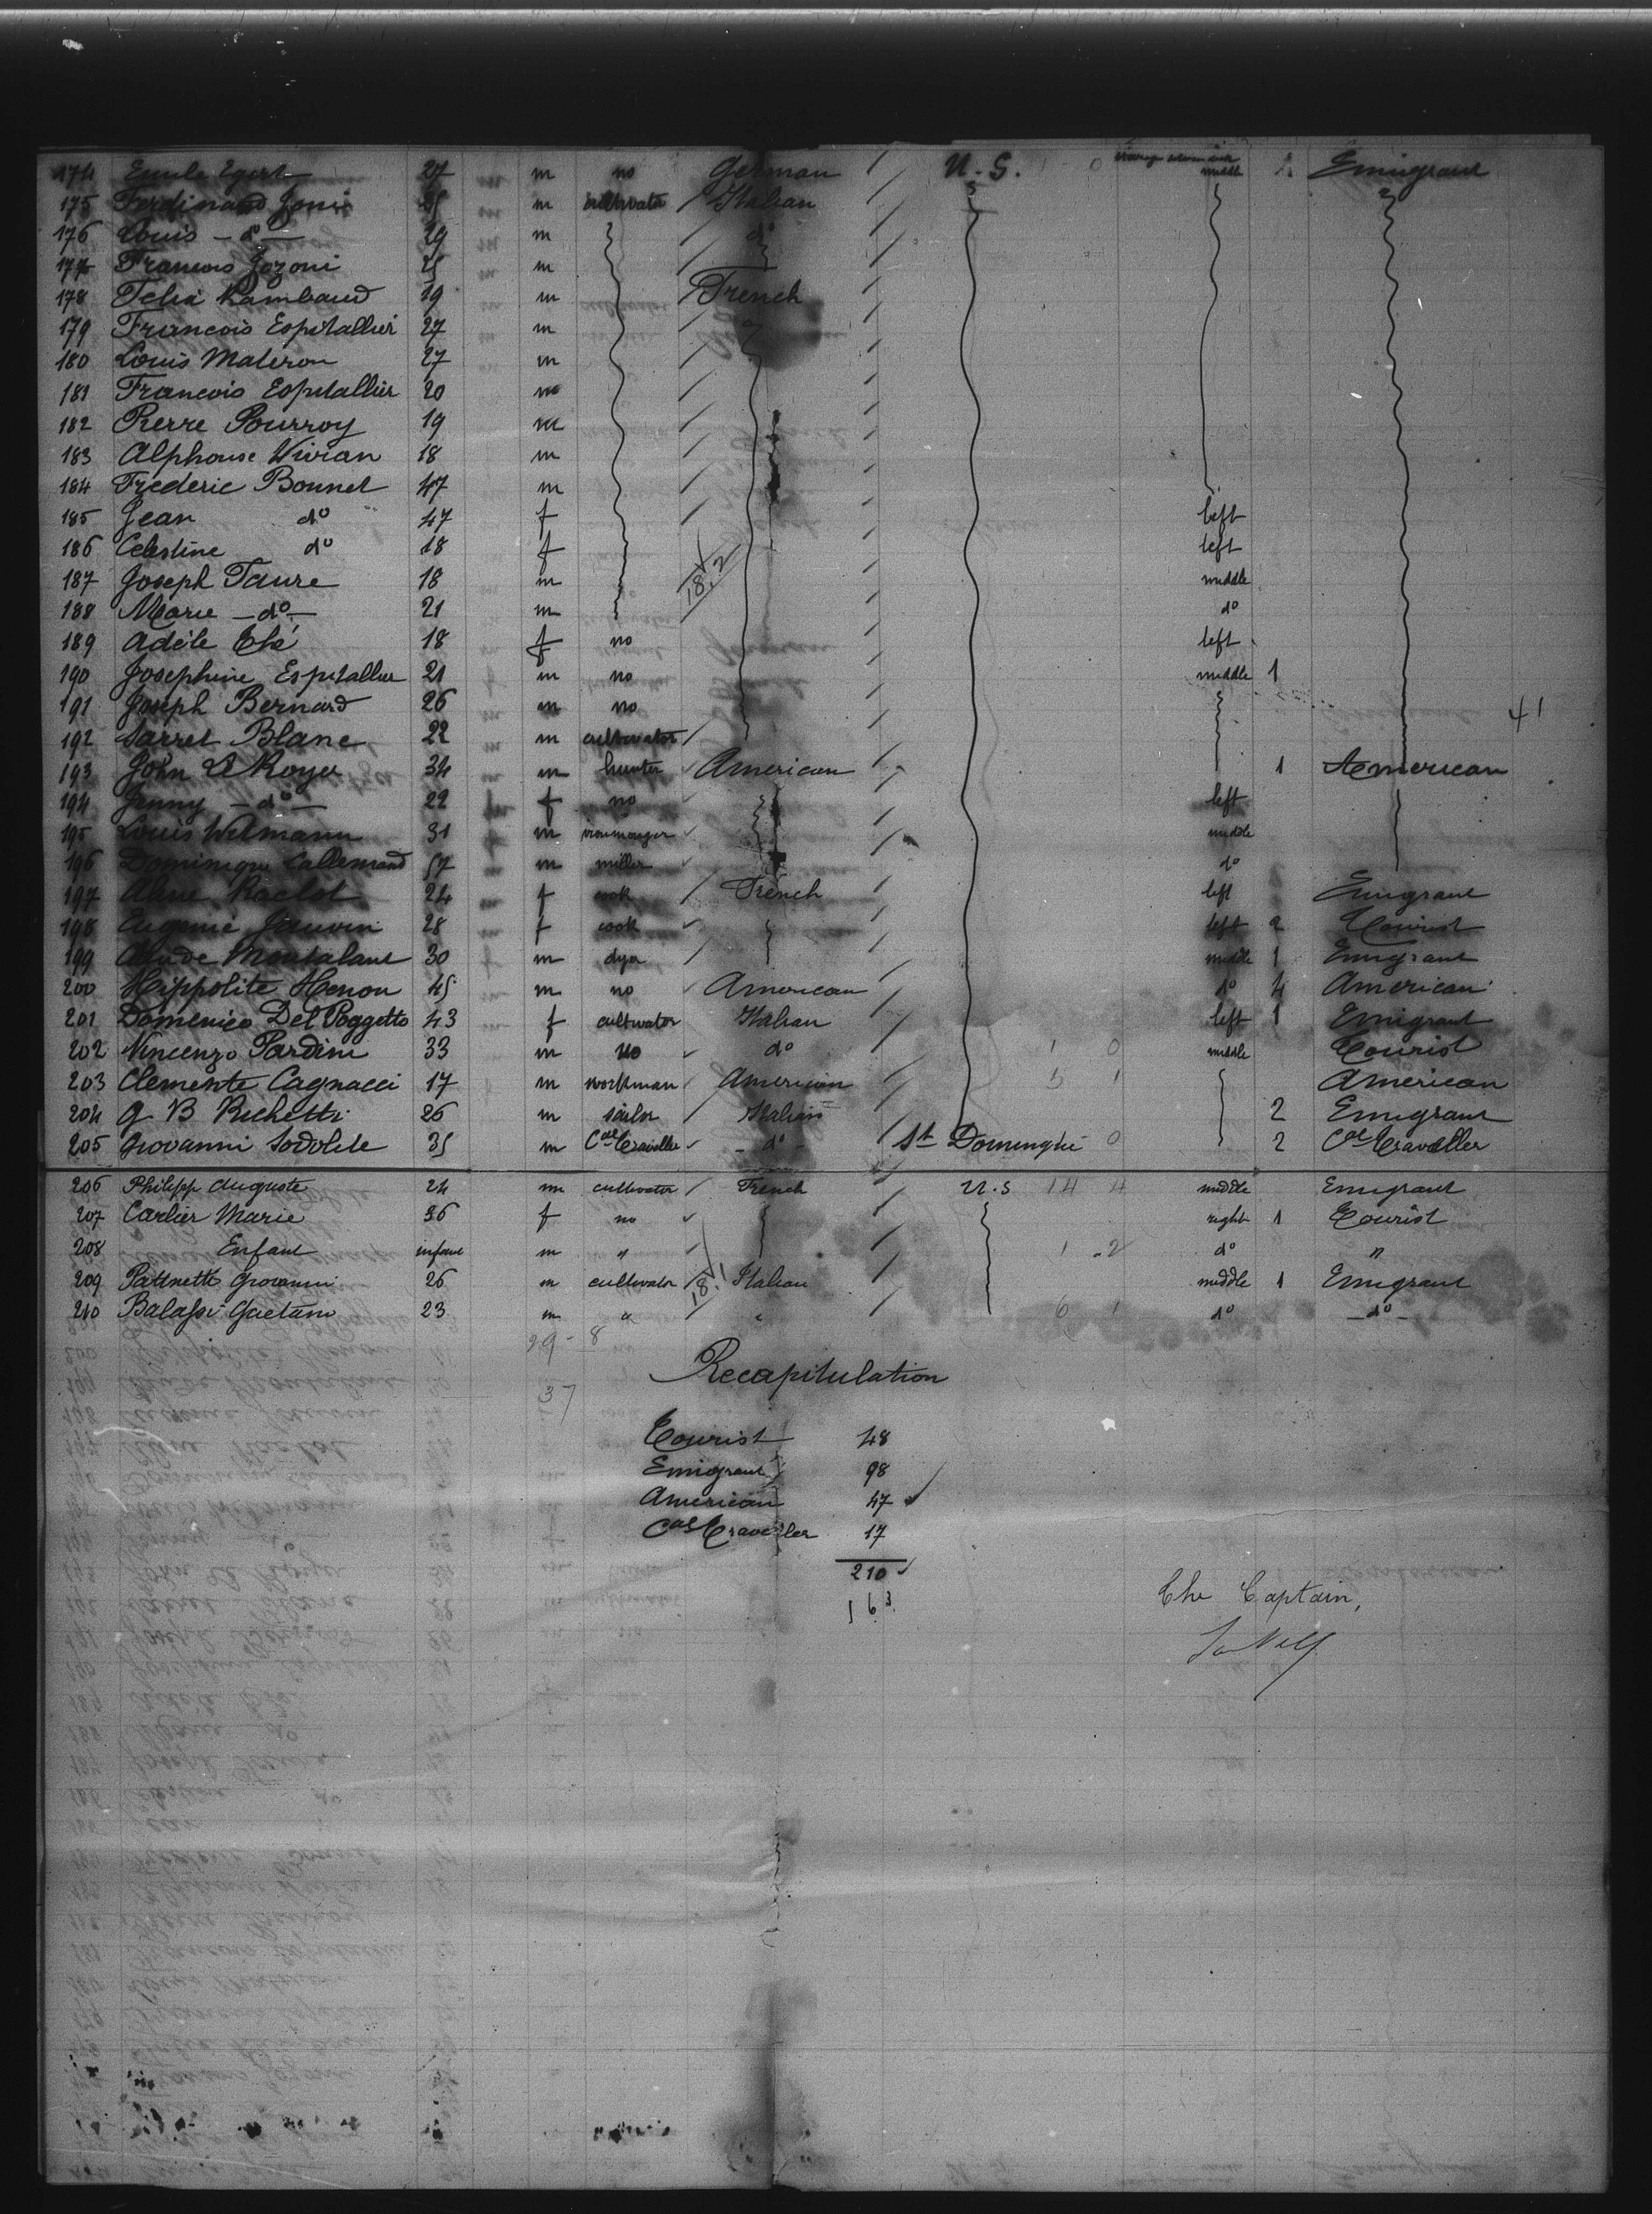 174 Emile Egert 27 m no German U.S. 1 0 middle 1 Emigrant
175 Ferdinand Joni m cultivator Italian
176 Louis - d° - 29 m d°
177 Francois Gozoni 25 m
178 Felix Rambaud 19 m French
179 Francois Espitallier 27 m
180 Louis Materon 27 m
181 Francois Espitallier 20 m
182 Pierre Pourroy 19 m
183 Alphonse Wivian 18 m
184 Frederic Bonnet 47 m
185 Jean d° 47 f left
186 Celestine d° 18 f left
187 Joseph Faure 18 m 18.2 middle
188 Marie - d° - 21 m d°
189 Adèle Ché 18 f no left
190 Josephine Espitallier 21 m no middle 1
191 Joseph Bernard 26 m no 41
192 Sarret Blanc 22 m cultivator
193 John Le Royer 34 m hunter American 1 American
194 Jenny - d° - 22 f no left
195 Louis Wilmann 31 m ironmonger middle
196 Dominique Lallemand 57 m miller d°
197 Aline Raclot 24 f cook French left Emigrant
198 Eugenie Jauvin 28 f cook left 2 Tourist
199 Claude Montalant 30 m dyer middle 1 Emigrant
200 Hippolite Henon 45 m no American d° 4 American
201 Domenico Del Poggetto 43 f cultivator Italian left 1 Emigrant
202 Vincenzo Pardini 33 m no d° 1 0 middle Tourist
203 Clemente Cagnacci 17 m workman American 5 1 American
204 G B Richetti 26 m sailor Italian 2 Emigrant
205 Giovanni Sodolite 35 m Cal Traveller - d° St Dominghe 0 2 Cal Traveller
206 Philipp Auguste 24 m cultivator French U.S 14 4 middle Emigrant
207 Carlier Marie 36 f no right 1 Tourist
208 Enfant infant m " 1 2 d° "
209 Pattinetti Giovanni 26 m cultivator 18.1 Italian middle 1 Emigrant
210 Balassi Gaetano 23 m " " 6 1 d° - d° -
29 - 8
Recapitulation
37
Tourist 48
Emigrant 98
American 47
Cal Traveller 17
210
163
The Captain,